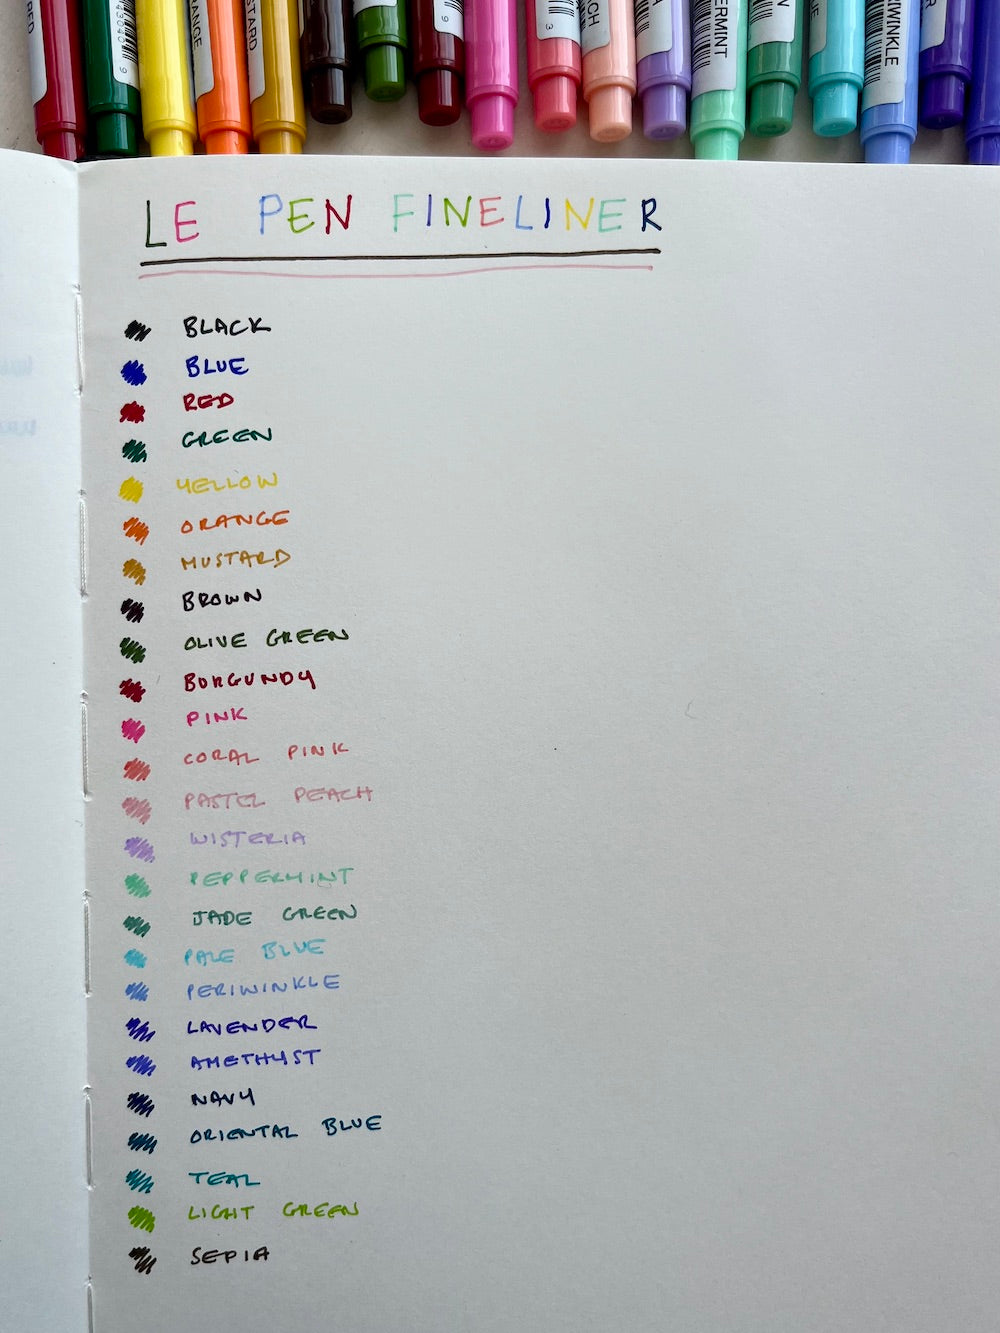 RED
ORANGE
STARD
9
3
ACH
A
ERMINT
N
UE
RIWINKLE
R
LE PEN FINELINER
BLACK
BLUE
RED
GREEN
YELLOW
ORANGE
MUSTARD
BROWN
OLIVE GREEN
BURGUNDY
PINK
CORAL PINK
PASTEL PEACH
WISTERIA
PEPPERMINT
JADE GREEN
PALE BLUE
PERIWINKLE
LAVENDER
AMETHYST
NAVY
ORIENTAL BLUE
TEAL
LIGHT GREEN
SEPIA